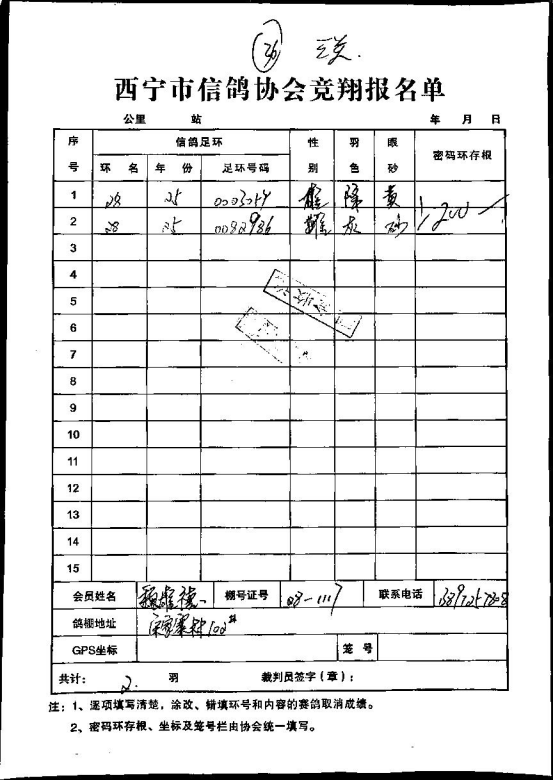 36
西宁市信鸽协会竞翔报名单
公里 站 年 月 日
序号 信鸽足环 性别 羽色 眼砂 密码环存根
环名 年份 足环号码
1 28 25 0003059 雄 绛 黄 1200
2 28 25 0082986 雄 灰 砂
3
4
5
6
7
8
9
10
11
12
13
14
15
会员姓名 棚号证号 08-1117 联系电话
鸽棚地址 宋家寨村102#
GPS坐标 笼号
共计: 2. 羽 裁判员签字(章):
注:1、逐项填写清楚,涂改、错填环号和内容的赛鸽取消成绩。
2、密码环存根、坐标及笼号栏由协会统一填写。